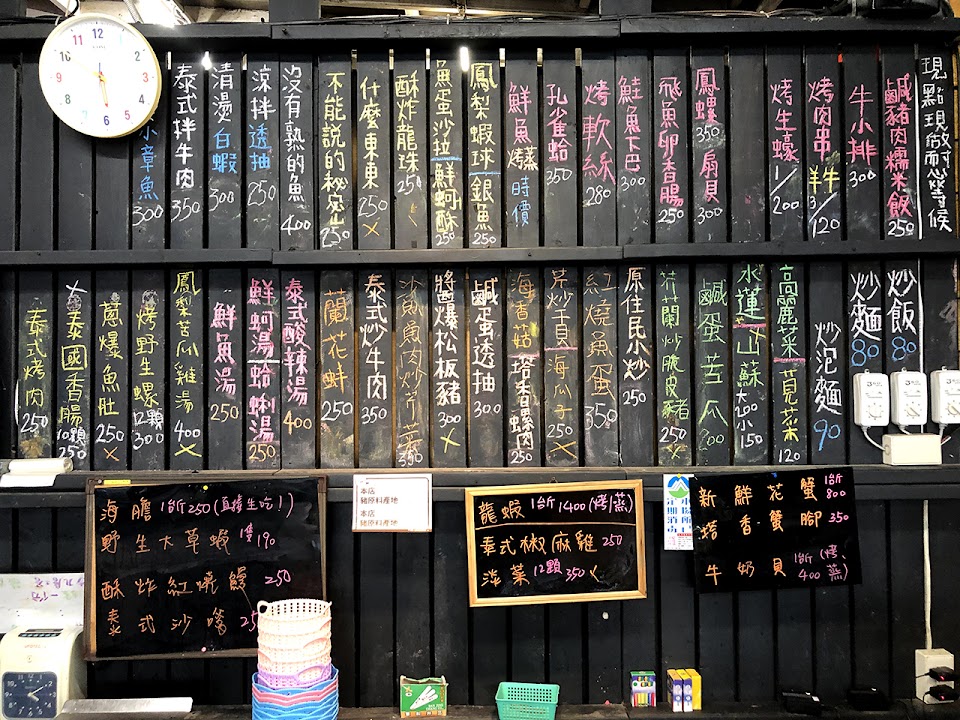 現點現做請您等候
鹹豬肉糯米飯 250
牛小排 300
烤肉串 羊牛 3/120
烤生蠔 1/200
鳳螺 350 扇貝 300
飛魚卵香腸 250
鮭魚下巴 300
烤軟絲 280
孔雀蛤 250
鮮魚 烤蒸 時價
鳳梨蝦球 銀魚 250
魚蛋沙拉 鮮蚵酥 250
酥炸龍珠 250
什麼東東 250 x
不能說的秘密 250
沒有熟的魚 400
涼拌透抽 250
清燙白蝦 300
泰式拌牛肉 350
小章魚 300
炒飯 80
炒麵 80
炒泡麵 90
高麗菜 莧菜 120
水蓮 大200 小150
鹹蛋苦瓜 200
芥蘭炒脆皮豬 250 x
原住民小炒 250
紅燒魚蛋 350
芹炒干貝 海瓜子 250 x
海香菇 塔香螺肉 250
鹹蛋透抽 300
醬爆松板豬 300 x
沙魚魚肉炒芹菜 350
泰式炒牛肉 350
蘭花蚌 250
泰式酸辣湯 400
鮮蚵湯 蛤蜊湯 250
鮮魚湯 250
鳳梨苦瓜雞湯 400 x
烤野生螺 12顆 300
蔥爆魚肚 250 x
x 泰國香腸 10顆 250
泰式烤肉 250
海膽 1台斤250 (直接生吃!)
野生大草蝦 1隻190
酥炸紅燒鰻 250
泰式沙嗲
本店
豬原料產地
本店
豬原料產地
龍蝦 1台斤1400 (烤/蒸)
泰式椒麻雞 250
淡菜 12顆 350 x
新鮮花蟹 1台斤 800
塔香蟹腳 350
牛奶貝 1台斤 400 (烤、蒸)
12 1 2 3 4 5 6 7 8 9 10 11